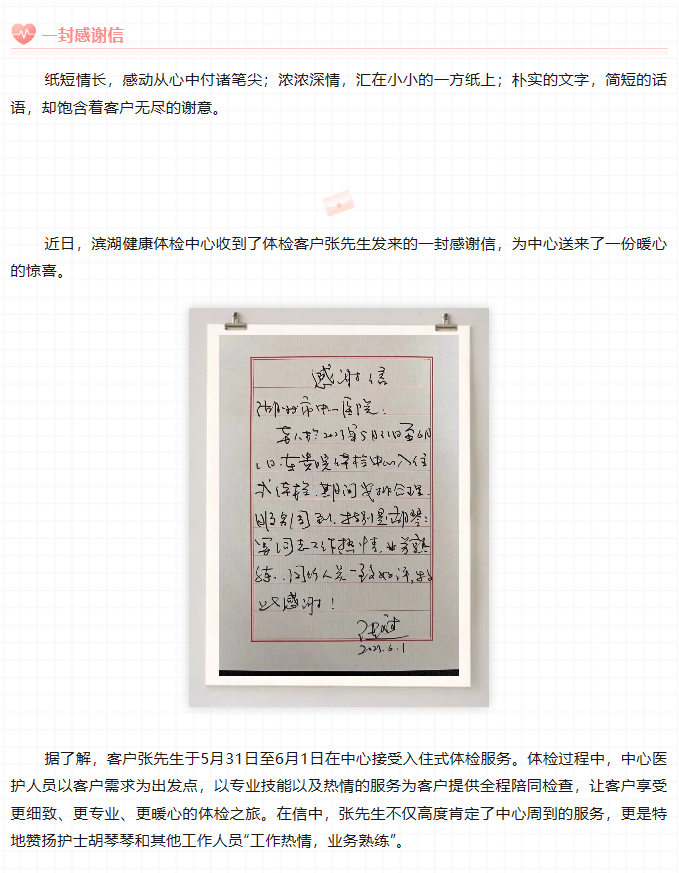 一封感谢信
纸短情长，感动从心中付诸笔尖；浓浓深情，汇在小小的一方纸上；朴实的文字，简短的话
语，却饱含着客户无尽的谢意。
近日，滨湖健康体检中心收到了体检客户张先生发来的一封感谢信，为中心送来了一份暖心
的惊喜。
感谢信
湖州市中心医院：
本人于2023年5月31日至6月
1日在贵院体检中心入住
式体检，期间安排合理，
服务周到，特别是胡琴
同志工作热情，业务熟
练，同行人员一致好评，
此感谢！
2023.6.1
据了解，客户张先生于5月31日至6月1日在中心接受入住式体检服务。体检过程中，中心医
护人员以客户需求为出发点，以专业技能以及热情的服务为客户提供全程陪同检查，让客户享受
更细致、更专业、更暖心的体检之旅。在信中，张先生不仅高度肯定了中心周到的服务，更是特
地赞扬护士胡琴琴和其他工作人员“工作热情，业务熟练”。